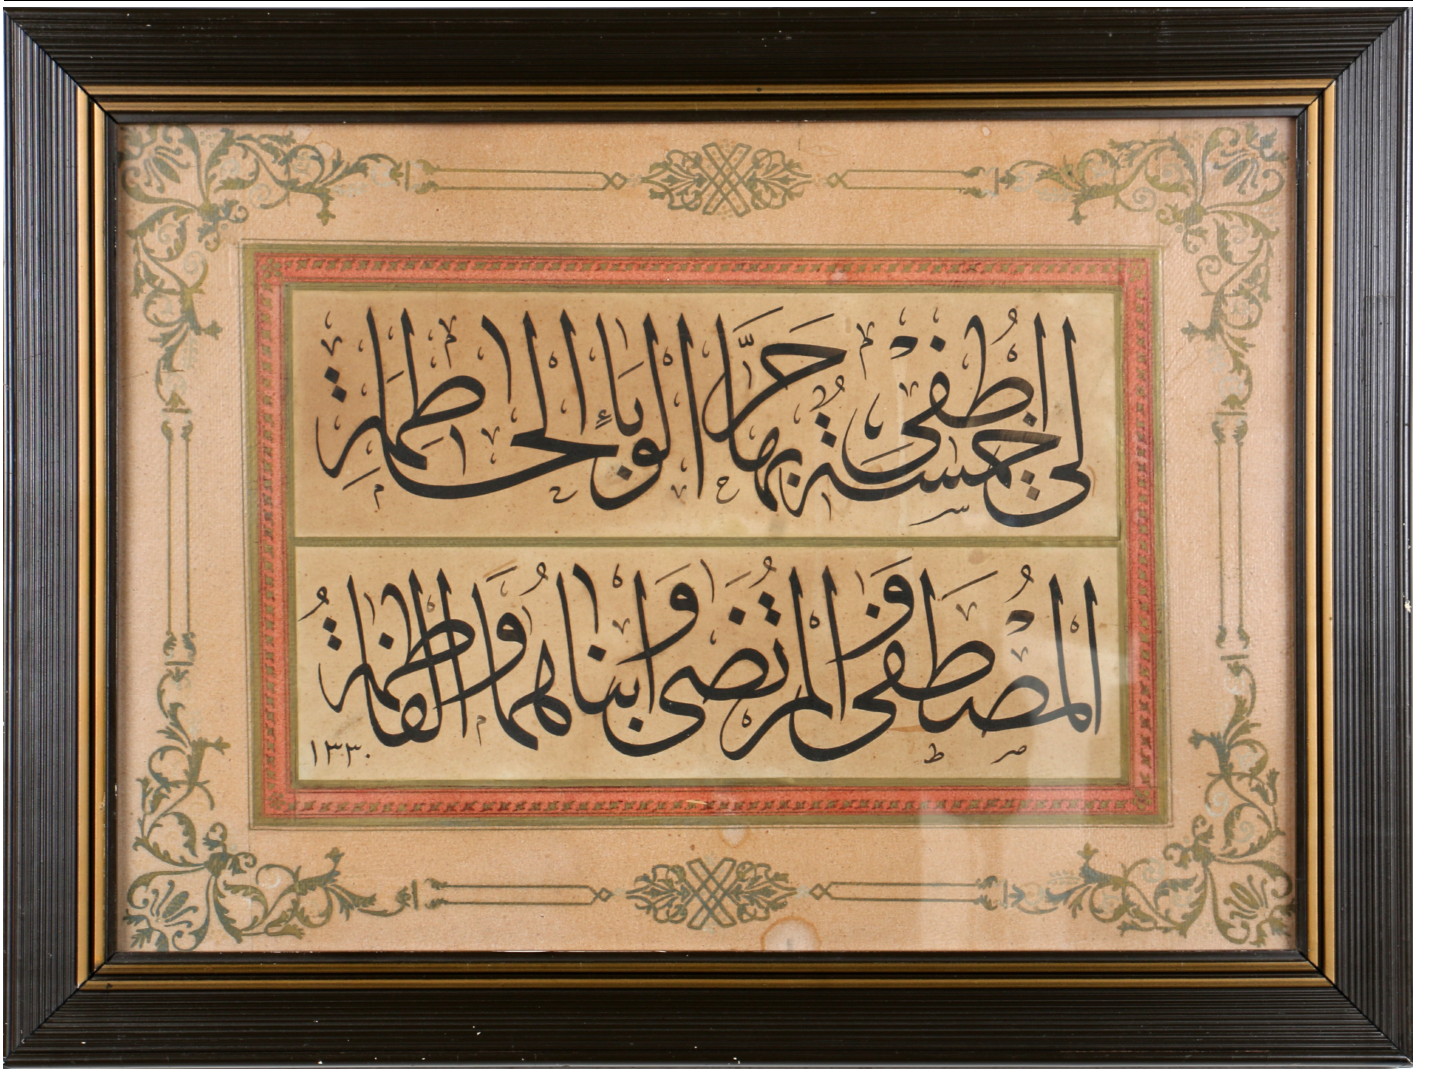 لِي خَمْسَةٌ اُطْفِى بِهَا حَرَّ الْوَبَاءِ الْحَاطِمَةِ
اَلْمُصْطَفَى وَالْمُرْتَضَى وَابْنَاهُمَا وَالْفَاطِمَةُ
١٣٣٠